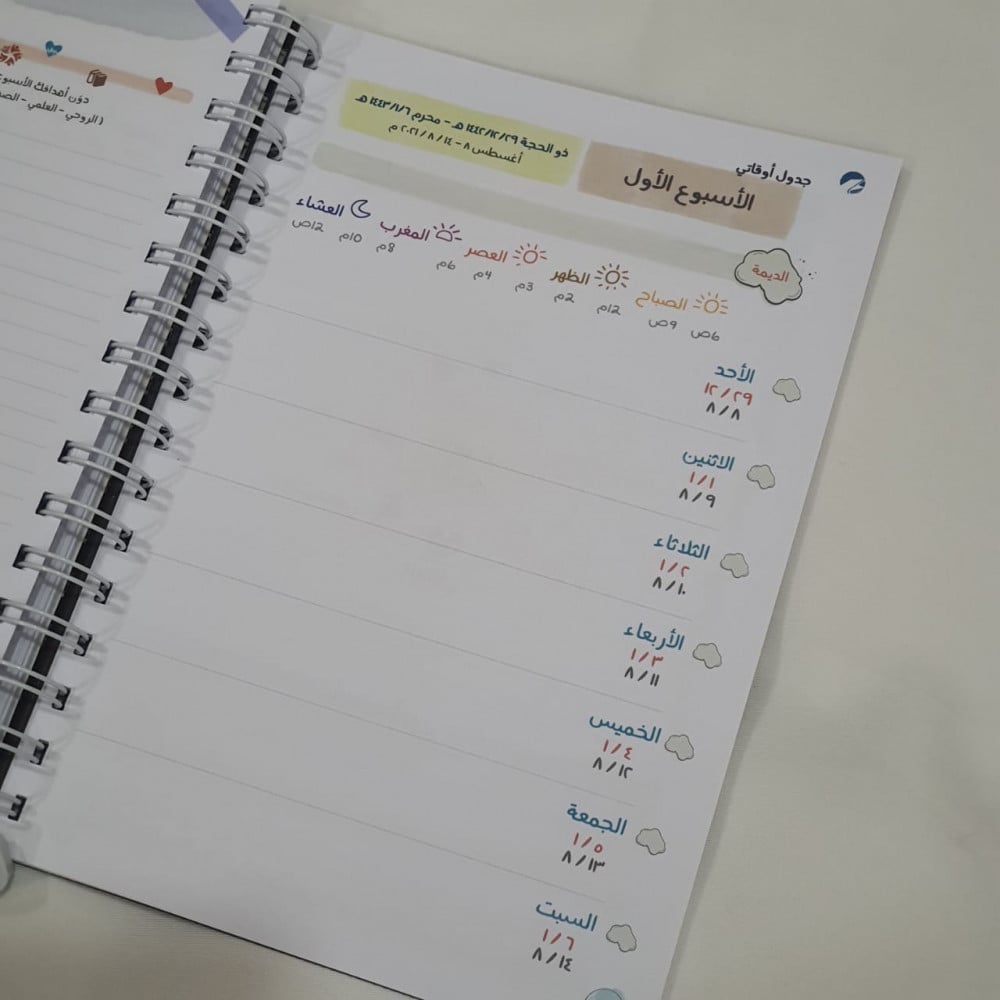 جدول أوقاتي
الأسبوع الأول
ذو الحجة ١٤٤٢/١٢/٢٩ هـ - محرم ١٤٤٣/١/٦ هـ
أغسطس ٨ - ١٤ / ٨ / ٢٠٢١ م
الديمة
الصباح الظهر العصر المغرب العشاء
6ص 9ص 12م 2م 3م 4م 6م 8م 10م 12ص
الأحد
١٢/٢٩
٨/٨
الاثنين
١/١
٨/٩
الثلاثاء
١/٢
٨/١٠
الأربعاء
١/٣
٨/١١
الخميس
١/٤
٨/١٢
الجمعة
١/٥
٨/١٣
السبت
١/٦
٨/١٤
دوّن أهدافك
(الروحي - العلمي -